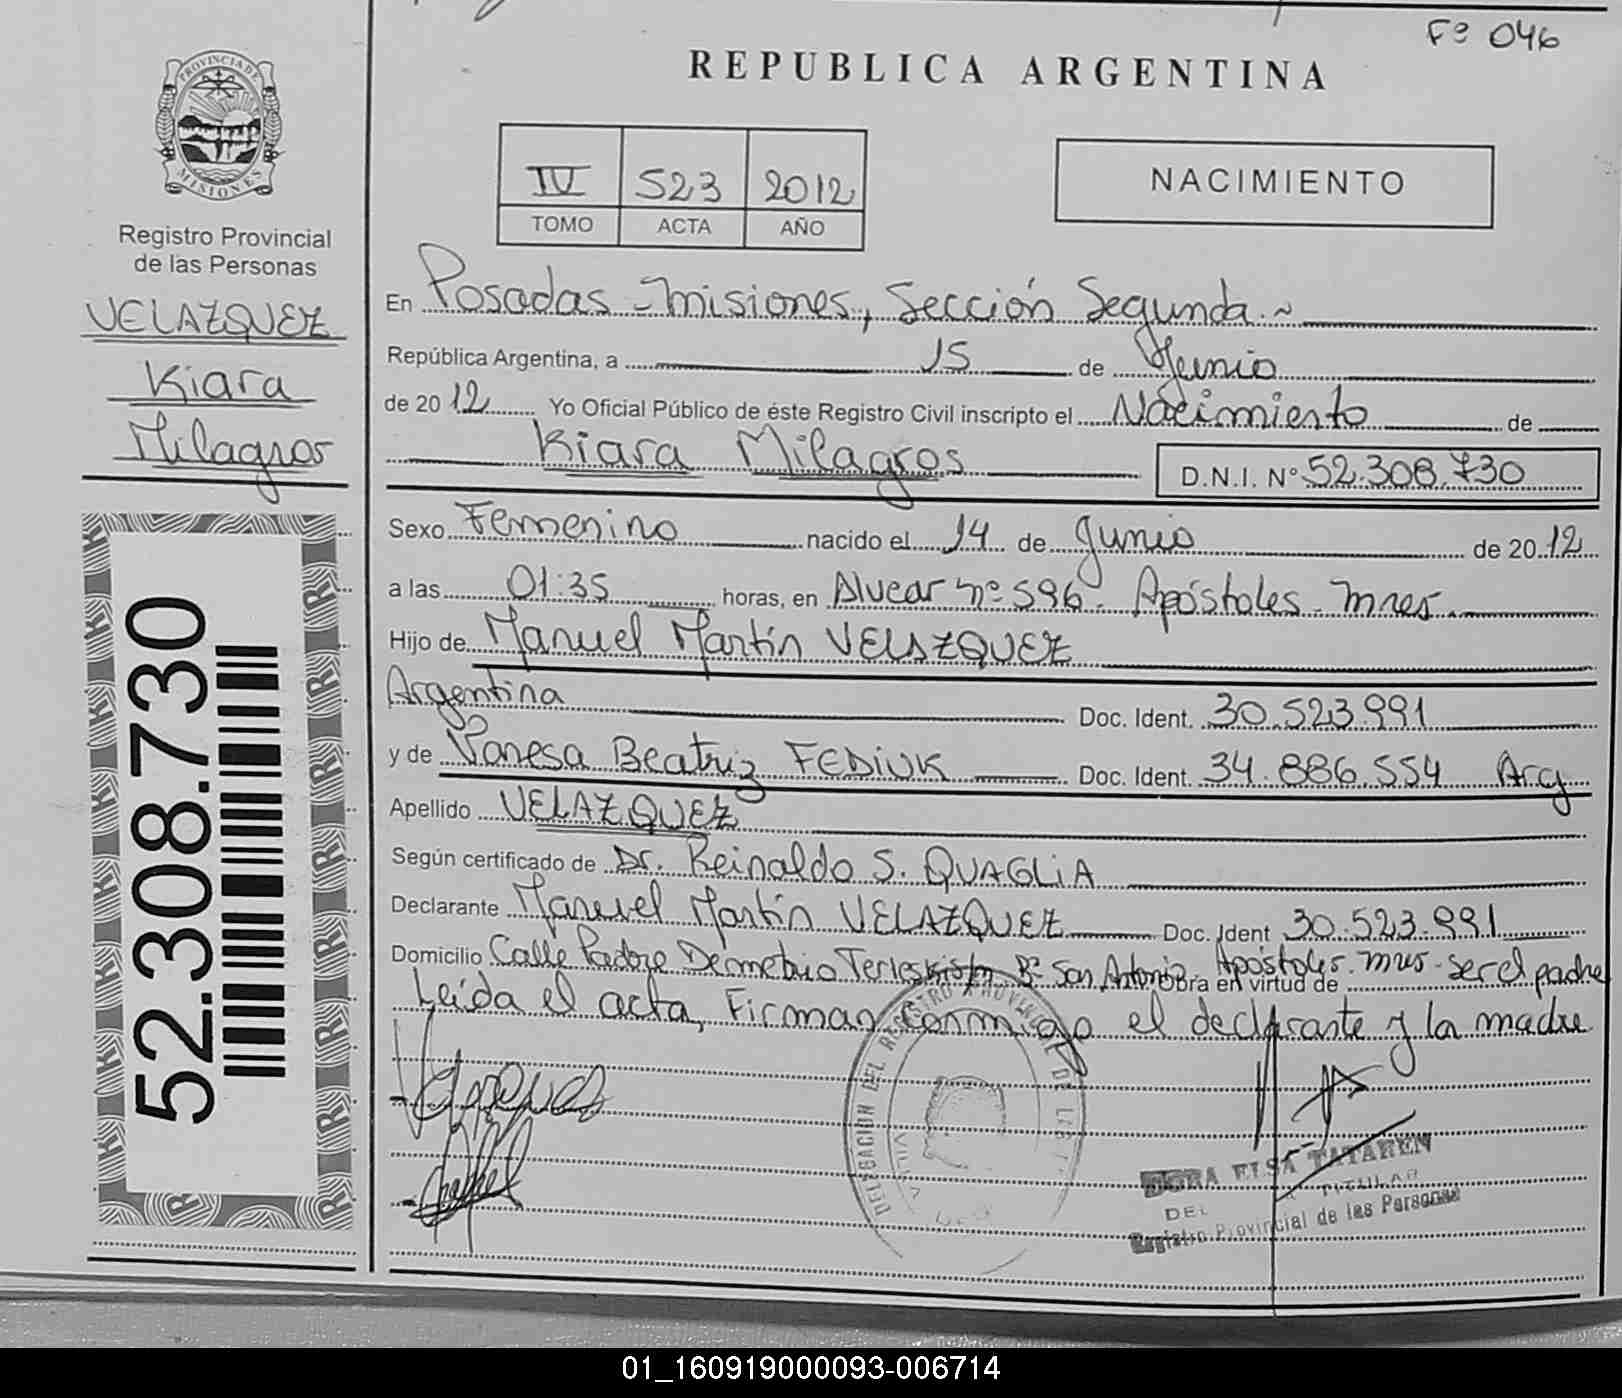 Fº 046
REPUBLICA ARGENTINA
PROVINCIA DE MISIONES
Registro Provincial
de las Personas
VELAZQUEZ
Kiara
Milagros
52.308.730
IV 523 2012
TOMO ACTA AÑO
NACIMIENTO
En Posadas - Misiones, Sección Segunda.~
República Argentina, a 15 de Junio
de 2012 Yo Oficial Público de éste Registro Civil inscripto el Nacimiento de
Kiara Milagros D.N.I. Nº 52.308.730
Sexo Femenino nacido el 14 de Junio de 2012
a las 01:35 horas, en Alvear nº 596. Apóstoles. Mnes.
Hijo de Manuel Martín VELAZQUEZ
Argentina Doc. Ident. 30.523.991
y de Vanesa Beatriz FEDIUK Doc. Ident. 34.886.554 Arg
Apellido VELAZQUEZ
Según certificado de Dr. Reinaldo S. QUAGLIA
Declarante Manuel Martín VELAZQUEZ Doc. Ident 30.523.991
Domicilio Calle Padre Demetrio Bº San Antonio. Apóstoles. Mnes - Obra en virtud de ser el padre
Leída el acta, Firman conmigo el declarante y la madre
DELEGACION DEL REGISTRO PROVINCIAL DE LAS
DORA ELSA TATAREN
TITULAR
DEL
Registro Provincial de las Personas
01_160919000093-006714